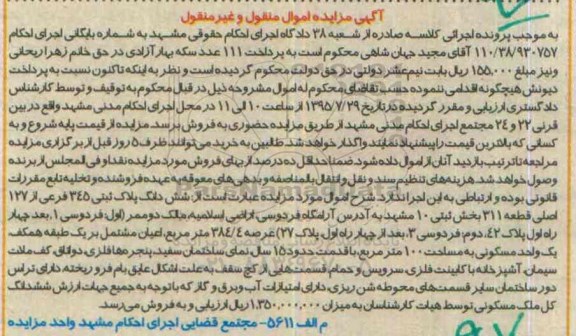 آگهی مزایده اموال منقول و غیرمنقول
به موجب پرونده اجرائی کلاسه صادره از شعبه ۳۸ دادگاه اجرای احکام حقوقی مشهد به شماره بایگانی اجرای احکام
۱۱۰/۳۸/۹۳۰۷۵۷ آقای مجید جهان شاهی محکوم است به پرداخت ۱۱۱ عدد سکه بهار آزادی در حق خانم زهرا ریحانی
ونیز مبلغ ۱۵۵،۰۰۰ ریال بابت نیم عشر دولتی در حق دولت محکوم گردیده است و نظر به اینکه تاکنون نسبت به پرداخت
دیونش هیچگونه اقدامی ننموده حسب تقاضای محکوم له اموال مشروحه ذیل در قبال محکوم به توقیف و توسط کارشناس
دادگستری ارزیابی و مقرر گردیده در تاریخ ۱۳۹۵/۷/۲۹ از ساعت ۱۰ الی ۱۱ در محل اجرای احکام مدنی مشهد واقع در بین
قرنی ۲۲ و ۲۴ مجتمع اجرای احکام مدنی مشهد از طریق مزایده حضوری به فروش برسد. مزایده از قیمت پایه شروع و به
کسانی که بالاترین قیمت را پیشنهاد نمایند واگذار خواهد شد. طالبین به خرید می توانند ظرف ۵ روز قبل از برگزاری مزایده
مراجعه تا ترتیب بازدید آنان از اموال داده شود. ضمنا حداقل ده درصد از بهای فروش مورد مزایده نقدا و فی المجلس از برنده
وصول خواهد شد. هزینه های تنظیم سند و نقل و انتقال بالمناصفه و بدهی های معوقه به عهده فروشنده و تخلیه تابع مقررات
قانونی بوده و ارتباطی به این اجرا ندارد. شرح اموال مورد مزایده عبارت است از: شش دانگ پلاک ثبتی ۳۴۵ فرعی از ۱۲۷
اصلی قطعه ۳۱۱ بخش ثبتی ۱۰ مشهد به آدرس آرامگاه فردوسی، اراضی اسلامیه، مالک دوم ممر (اول: فردوسی ۱، بعد چهار
راه اول پلاک ۴۲، دوم: فردوسی ۳، بعد از چهار راه اول پلاک ۲۷) عرصه ۳۸۴/۴ متر مربع، اعیان مشتمل بر یک طبقه همکف
یک واحد مسکونی به مساحت ۱۰۰ متر مربع، با قدمت حدود ۱۵ سال نمای ساختمان سفید، پنجره ها فلزی، دو اتاق، کف ملات
سیمان، آشپزخانه با کابینت فلزی، سرویس و حمام، قسمت هایی از گچ سقف به علت اشکال عایق بام فرو ریخته، دارای تراس
دور ساختمان سایر قسمت های محوطه شن ریزی، دارای امتیازات آب و برق و گاز که با توجه به جمیع جهات ارزش ششدانگ
کل ملک مسکونی توسط هیات کارشناسان به میزان ۱،۳۵۰،۰۰۰،۰۰۰ ریال ارزیابی و به فروش می رسد.
م الف ۵۶۱۱- مجتمع قضایی اجرای احکام مشهد واحد مزایده
ParsNamadData